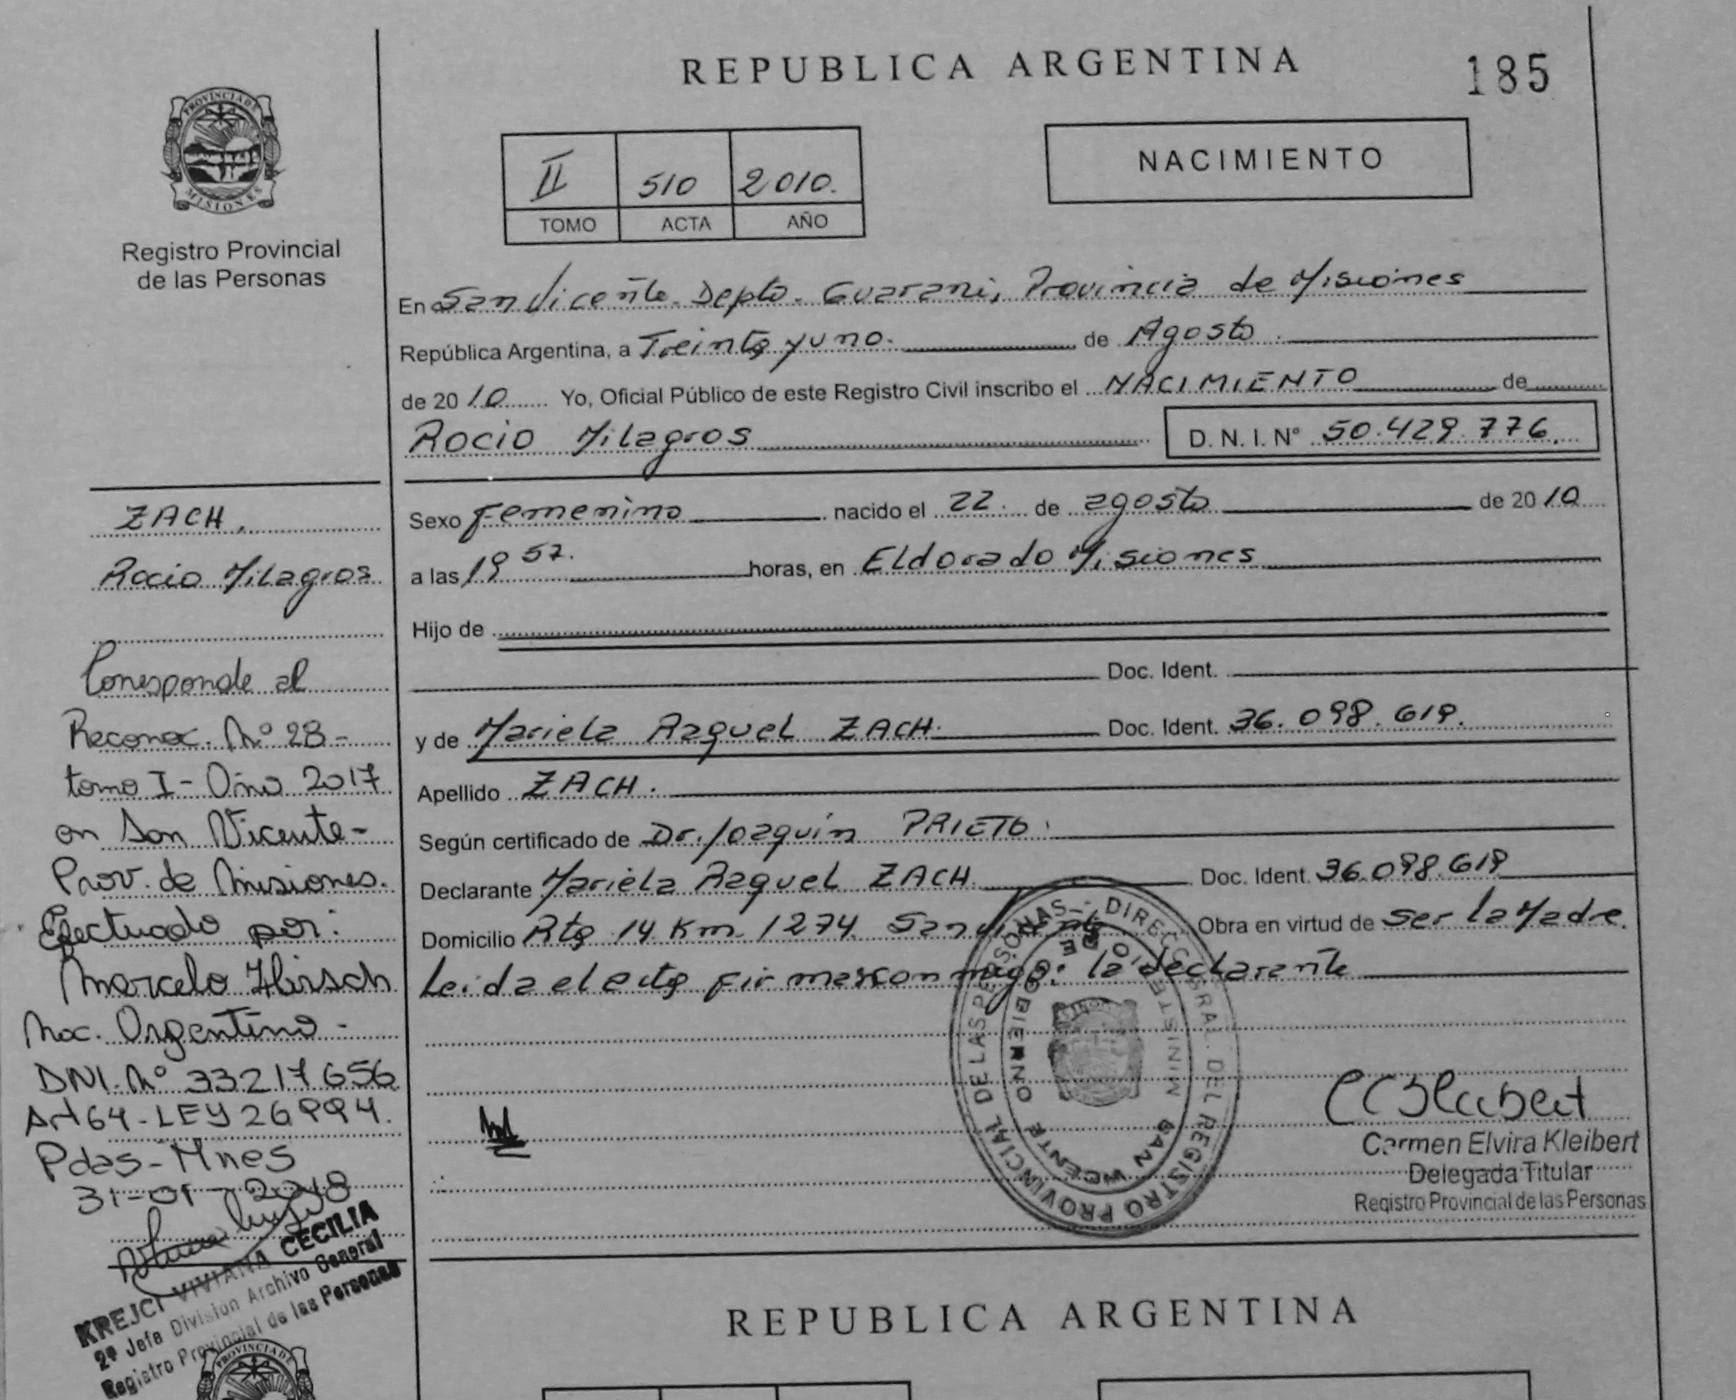 REPUBLICA ARGENTINA
185
PROVINCIA DE
MISIONES
Registro Provincial
de las Personas
II 510 2010.
TOMO ACTA AÑO
NACIMIENTO
En San Vicente. Depto. Guarani, Provincia de Misiones
República Argentina, a Treinta y uno. de Agosto.
de 2010 Yo, Oficial Público de este Registro Civil inscribo el NACIMIENTO de
Rocio Milagros D. N. I. N° 50.429.776.
Sexo femenino nacido el 22 de agosto de 2010
a las 19 57. horas, en Eldorado Misiones
Hijo de
Doc. Ident.
y de Mariela Raquel ZACH. Doc. Ident. 36.098.619.
Apellido ZACH.
Según certificado de Dr. Joaquin PRIETO.
Declarante Mariela Raquel ZACH. Doc. Ident. 36.098.619
Domicilio Rta 14 Km 1274 San Vicente Obra en virtud de ser la Madre.
Leida el acta firmas conmigo: la declarante
ZACH.
Rocio Milagros
Corresponde al
Reconoc. Nº 28-
tomo I - Año 2017
en San Vicente-
Prov. de Misiones.
Efectuado por:
Marcelo Hirsch
Nac. Argentino-
DNI. Nº 33217656
Art 64 - LEY 26994.
Pdas - Mnes
31-01-2018
KREJCI VIVIANA CECILIA
2º Jefe División Archivo General
Registro Provincial de las Personas
DIREC GRAL. DEL REGISTRO PROVINCIAL DE LAS PERSONAS
MINISTERIO DE GOBIERNO
SAN VICENTE
Carmen Elvira Kleibert
Delegada Titular
Registro Provincial de las Personas
REPUBLICA ARGENTINA
PROVINCIA DE